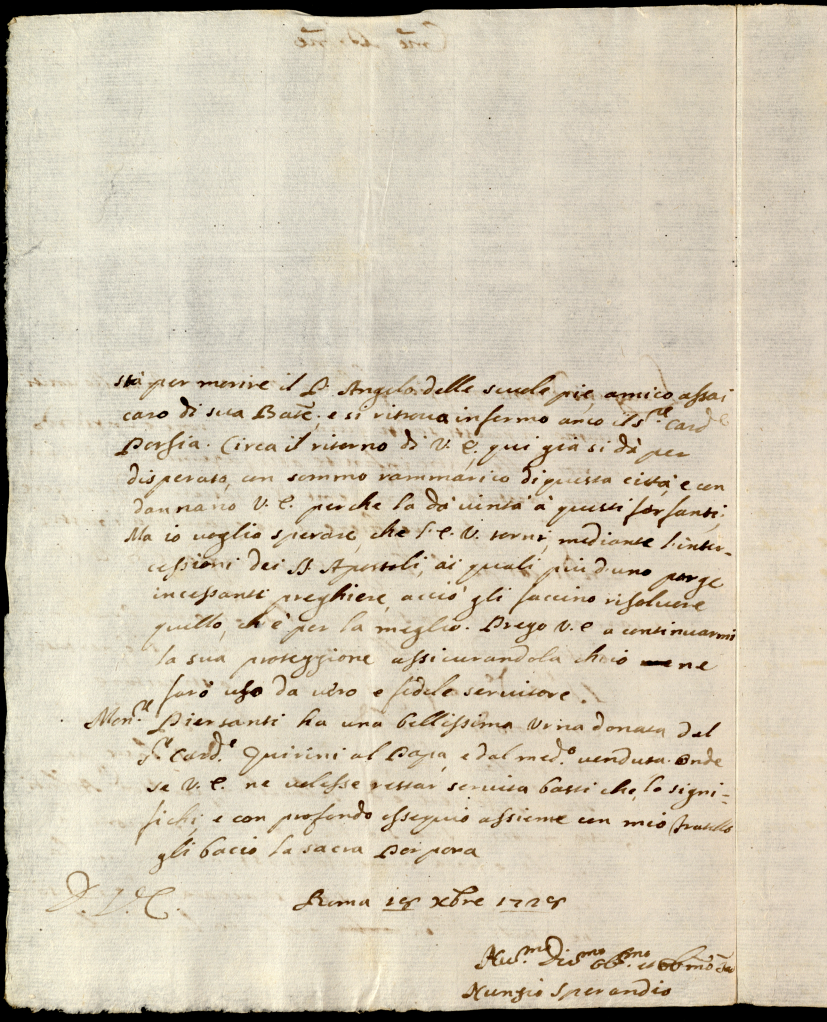 stà per morire il P. Angelo delle scuole pie, amico assai
caro di sua Bat.e; e si ritrova infermo anco il s.re Card.e
Porsia. Circa il ritorno di V. E. qui già si dà per
disperato, con sommo rammarico di questa città, e con
dannano V. E. perche la dà vinta à questi forfanti.
Ma io voglio sperare, che l'E. V. torni, mediante l'inter-
cessioni dei SS. Apostoli, ai quali più d'uno porge
incessanti preghiere, acciò gli faccino risolvere
quello, ch'è per la meglio. Prego V. E. a continuarmi
la sua proteggione assicurandola ch'io ne
farò uso da vero e fidele servitore.
Mon.re Piersanti ha una bellissima urna donata dal
s.re Card.e Quirini al Papa, e dal med.o venduta. Onde
se V. E. ne volesse restar servita basti che lo signi=
fichi; e con profondo ossequio assieme con mio fratello
gli bacio la sacra Porpora
D. V. E.
Roma 18 Xbre 1728
Hu.mo Dis.mo obb.mo
Nunzio Sperandio